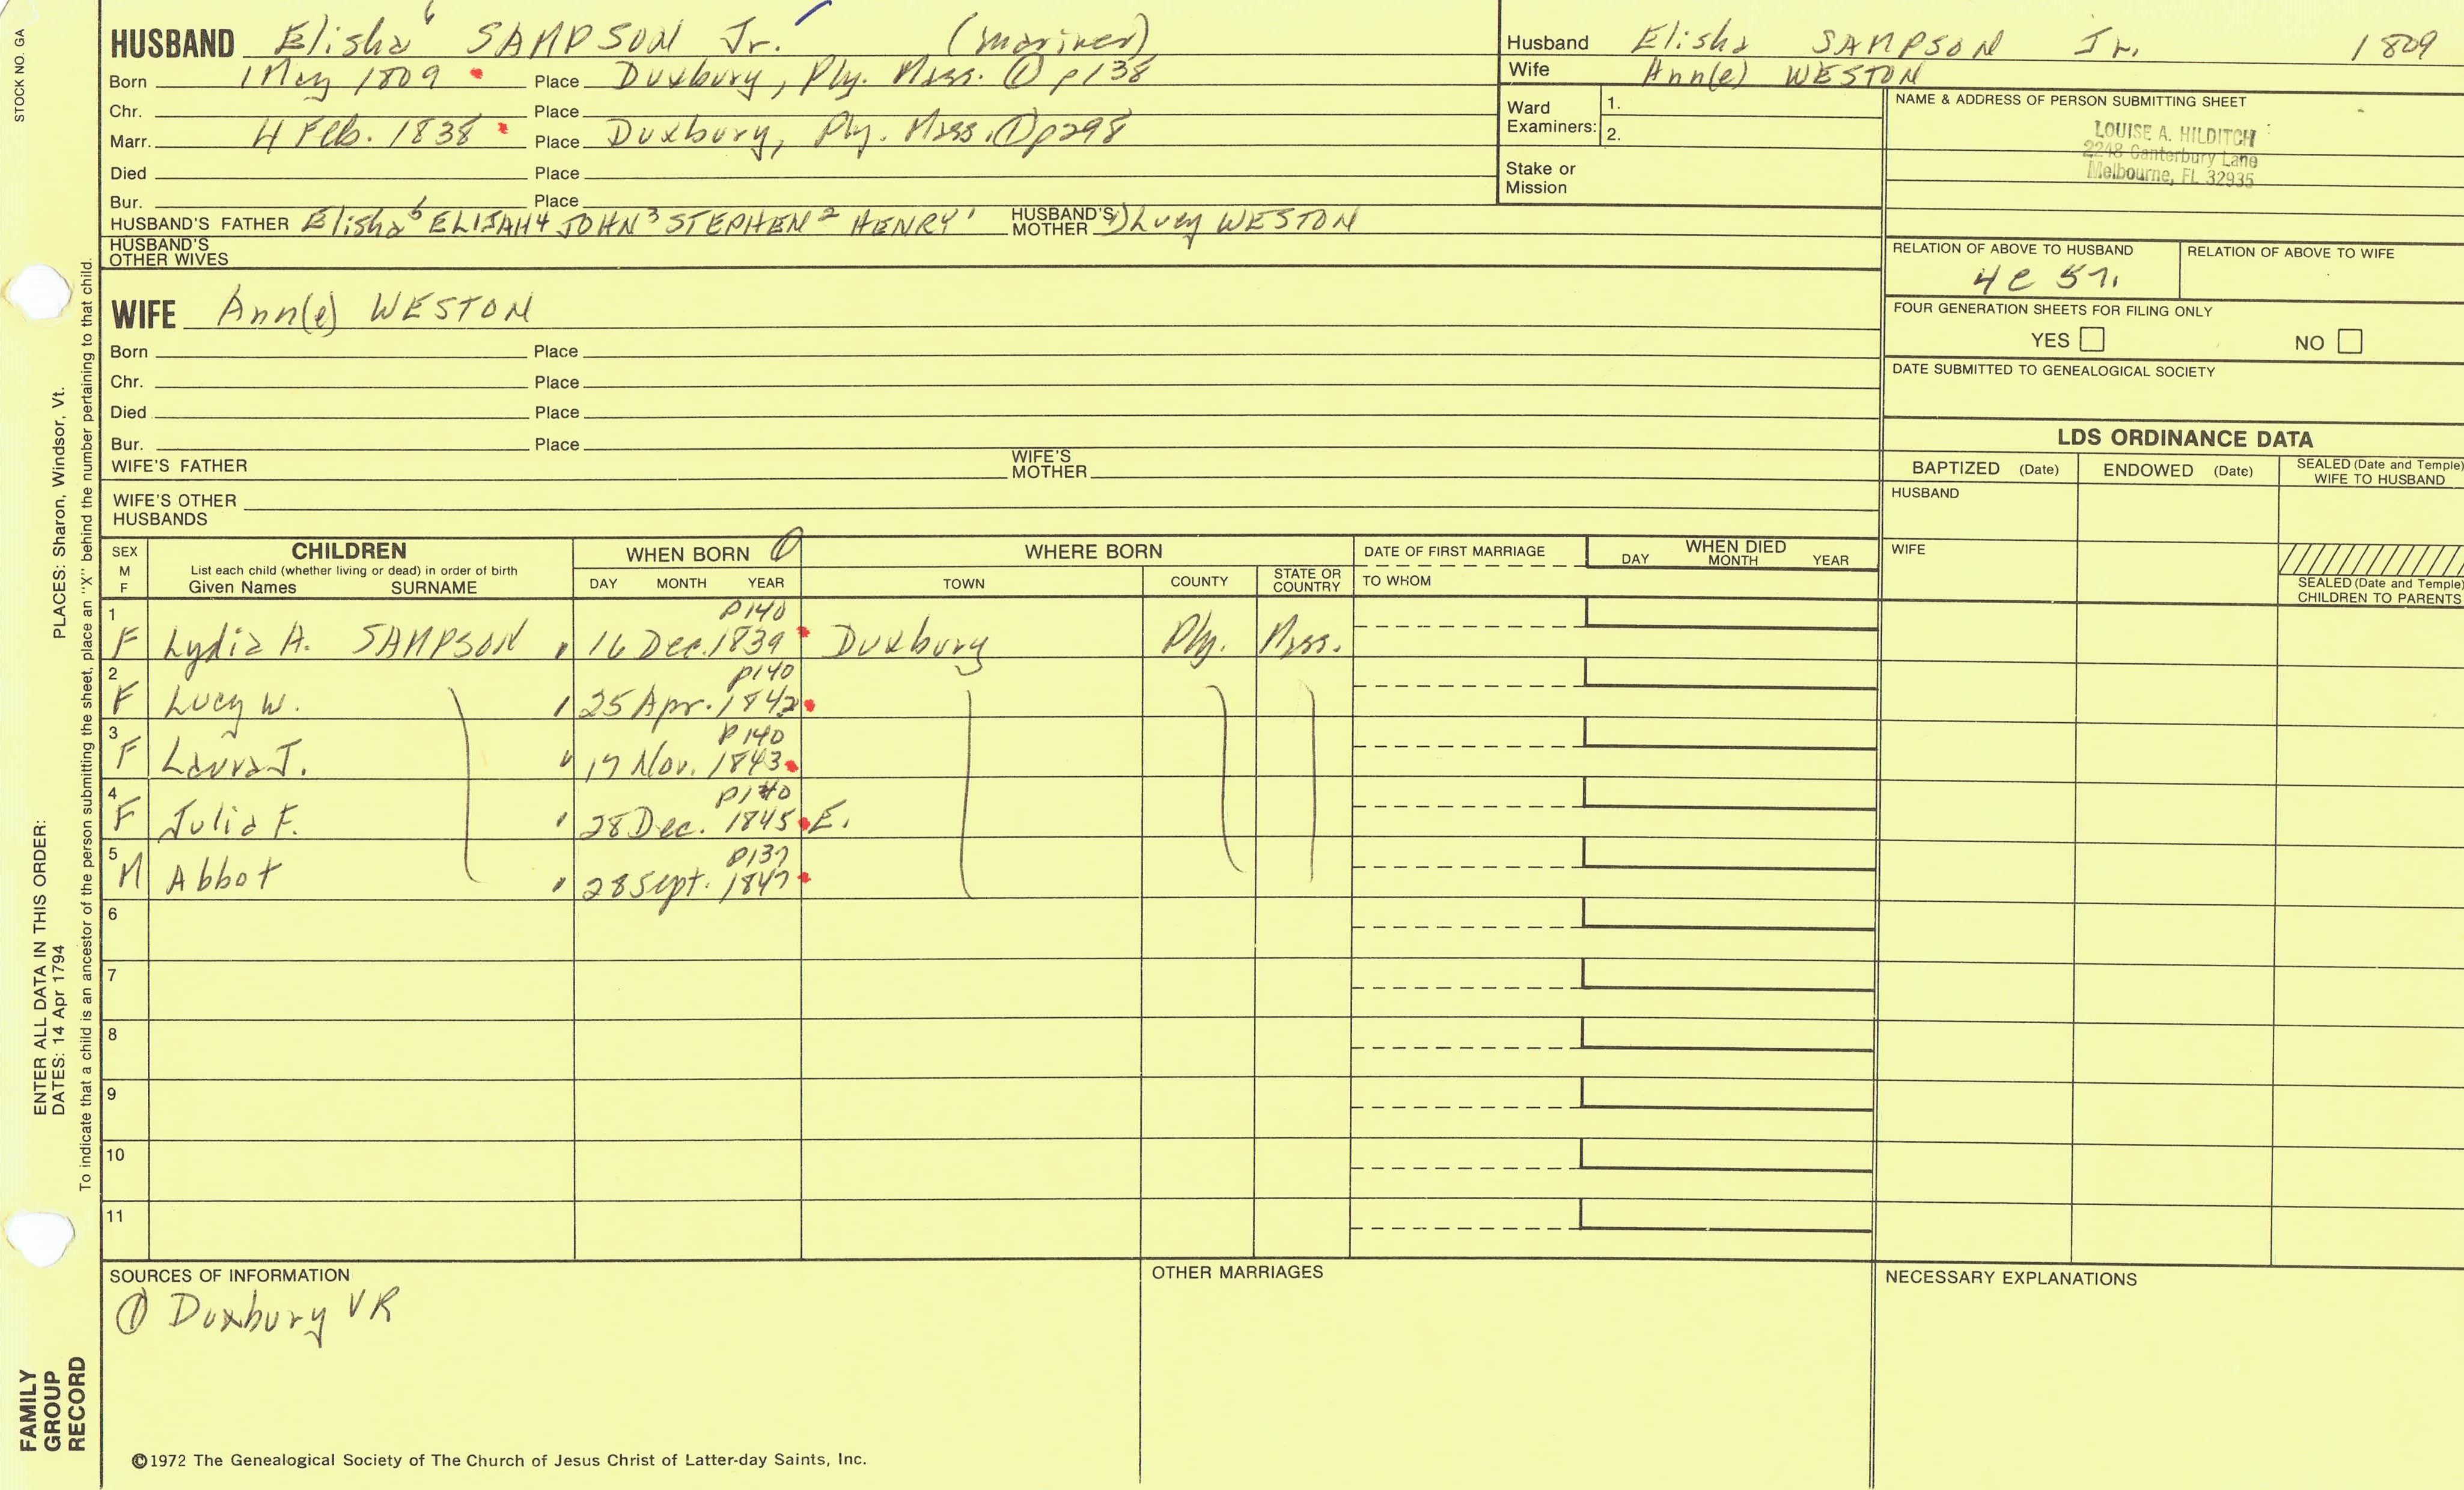 STOCK NO. GA
HUSBAND Elisha 6 SAMPSON Jr. (mariner)
Born 1 May 1809 Place Duxbury, Ply. Mass. ① p138
Chr. Place
Marr. 4 Feb. 1838 Place Duxbury, Ply. Mass. ① p298
Died Place
Bur. Place
HUSBAND'S FATHER Elisha 5 ELIJAH 4 JOHN 3 STEPHEN 2 HENRY 1 HUSBAND'S MOTHER Lucy WESTON
HUSBAND'S OTHER WIVES
Husband Elisha SAMPSON Jr. 1809
Wife Ann(e) WESTON
Ward Examiners: 1.
2.
Stake or Mission
NAME & ADDRESS OF PERSON SUBMITTING SHEET
LOUISE A. HILDITCH
2248 Canterbury Lane
Melbourne, FL 32935
RELATION OF ABOVE TO HUSBAND RELATION OF ABOVE TO WIFE
4c 5r.
FOUR GENERATION SHEETS FOR FILING ONLY
YES NO
DATE SUBMITTED TO GENEALOGICAL SOCIETY
WIFE Ann(e) WESTON
Born Place
Chr. Place
Died Place
Bur. Place
WIFE'S FATHER WIFE'S MOTHER
WIFE'S OTHER HUSBANDS
LDS ORDINANCE DATA
BAPTIZED (Date) ENDOWED (Date) SEALED (Date and Temple) WIFE TO HUSBAND
HUSBAND
WIFE
SEALED (Date and Temple) CHILDREN TO PARENTS
SEX M F CHILDREN WHEN BORN ① WHERE BORN DATE OF FIRST MARRIAGE WHEN DIED
List each child (whether living or dead) in order of birth
Given Names SURNAME DAY MONTH YEAR TOWN COUNTY STATE OR COUNTRY TO WHOM DAY MONTH YEAR
p140
1 F Lydia A. SAMPSON 16 Dec. 1839 Duxbury Ply. Mass.
p140
2 F Lucy W. 25 Apr. 1842
p140
3 F Laura J. 17 Nov. 1843
p140
4 F Julia F. 28 Dec. 1845 E.
p137
5 M Abbot 28 Sept. 1847
6
7
8
9
10
11
SOURCES OF INFORMATION OTHER MARRIAGES NECESSARY EXPLANATIONS
① Duxbury VR
©1972 The Genealogical Society of The Church of Jesus Christ of Latter-day Saints, Inc.
ENTER ALL DATA IN THIS ORDER:
DATES: 14 Apr 1794 PLACES: Sharon, Windsor, Vt.
To indicate that a child is an ancestor of the person submitting the sheet, place an "X" behind the number pertaining to that child.
FAMILY
GROUP
RECORD